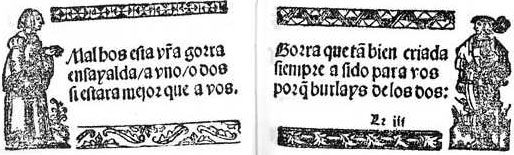 Mal hos esta vr̃a gorra
ensayalda/a vno/o dos
si estara mejor que a vos.
Gorra que tã bien criada
siempre a sido para vos
porq̃ burlays de los dos:
Rr iij